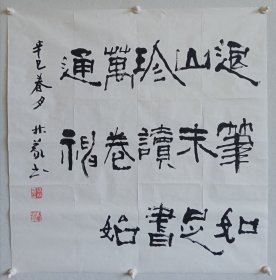 退筆如
山未足
珍讀書
萬卷始
通神
辛巳春